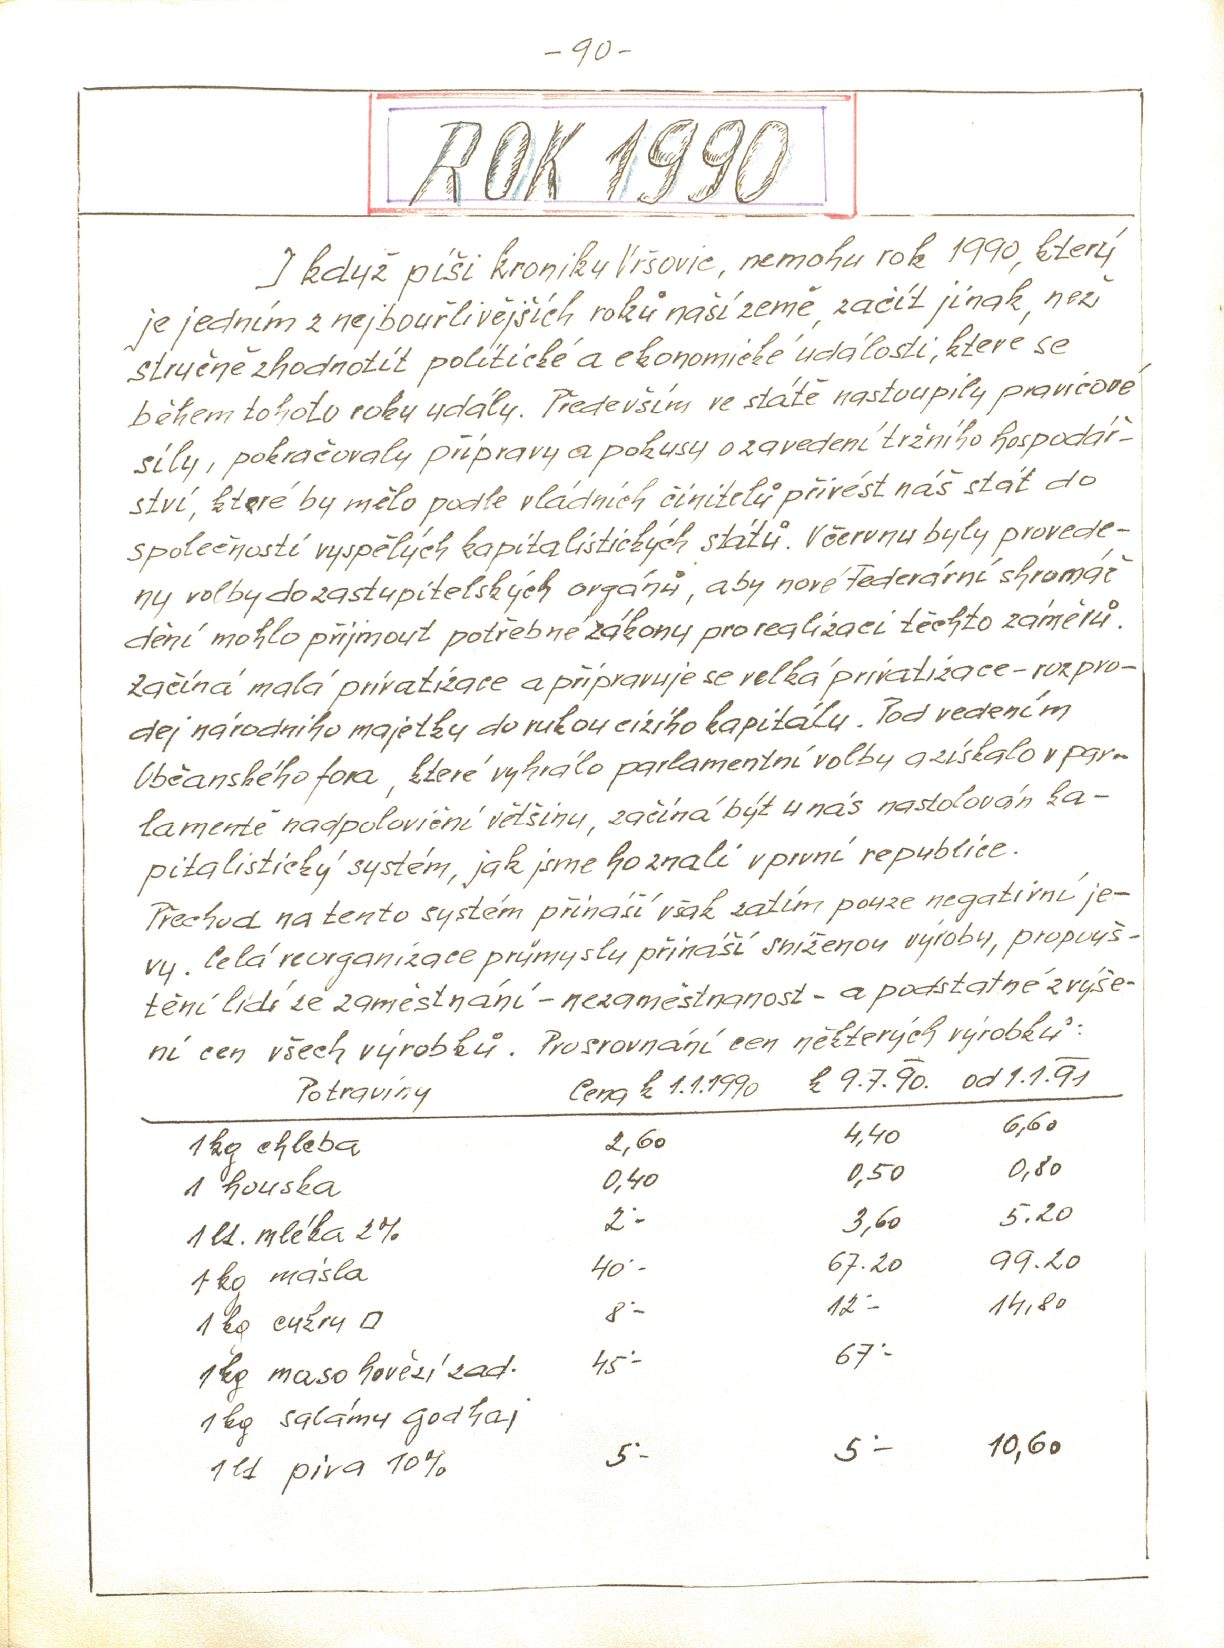 - 90 -
ROK 1990
I když píši kroniku Vršovic, nemohu rok 1990, který
je jedním z nejbouřlivějších roků naší země, začít jinak, než
stručně zhodnotit politické a ekonomické události, které se
během tohoto roku udály. Především ve státě nastoupily pravicové
síly, pokračovaly přípravy a pokusy o zavedení tržního hospodář-
ství, které by mělo podle vládních činitelů přivést náš stát do
společnosti vyspělých kapitalistických států. V červnu byly provede-
ny volby do zastupitelských orgánů, aby nové Federární shromáž
dění mohlo přijmout potřebné zákony pro realizaci těchto záměrů.
Začíná malá privatizace a připravuje se velká privatizace - rozpro-
dej národního majetku do rukou cizího kapitálu. Pod vedením
Občanského fora, které vyhrálo parlamentní volby a získalo v par-
lamentě nadpoloviční většinu, začíná být u nás nastolován ka-
pitalistický systém, jak jsme ho znali v první republice.
Přechod na tento systém přináší však zatím pouze negativní je-
vy. Celá reorganizace průmyslu přináší sníženou výrobu, propouš-
tění lidí ze zaměstnání - nezaměstnanost - a podstatné zvýše-
ní cen všech výrobků. Pro srovnání cen některých výrobků:
Potraviny Cena k 1.1.1990 k 9.7.90. od 1.1.91
1 kg chleba 2,60 4,40 6,60
1 houska 0,40 0,50 0,80
1 lt. mléka 2% 2·- 3,60 5.20
1 kg másla 40·- 67.20 99.20
1 kg cukru □ 8·- 12·- 14,80
1 kg maso hovězí zad. 45·- 67·-
1 kg salámu Godhaj
1 lt piva 10% 5·- 5·- 10,60